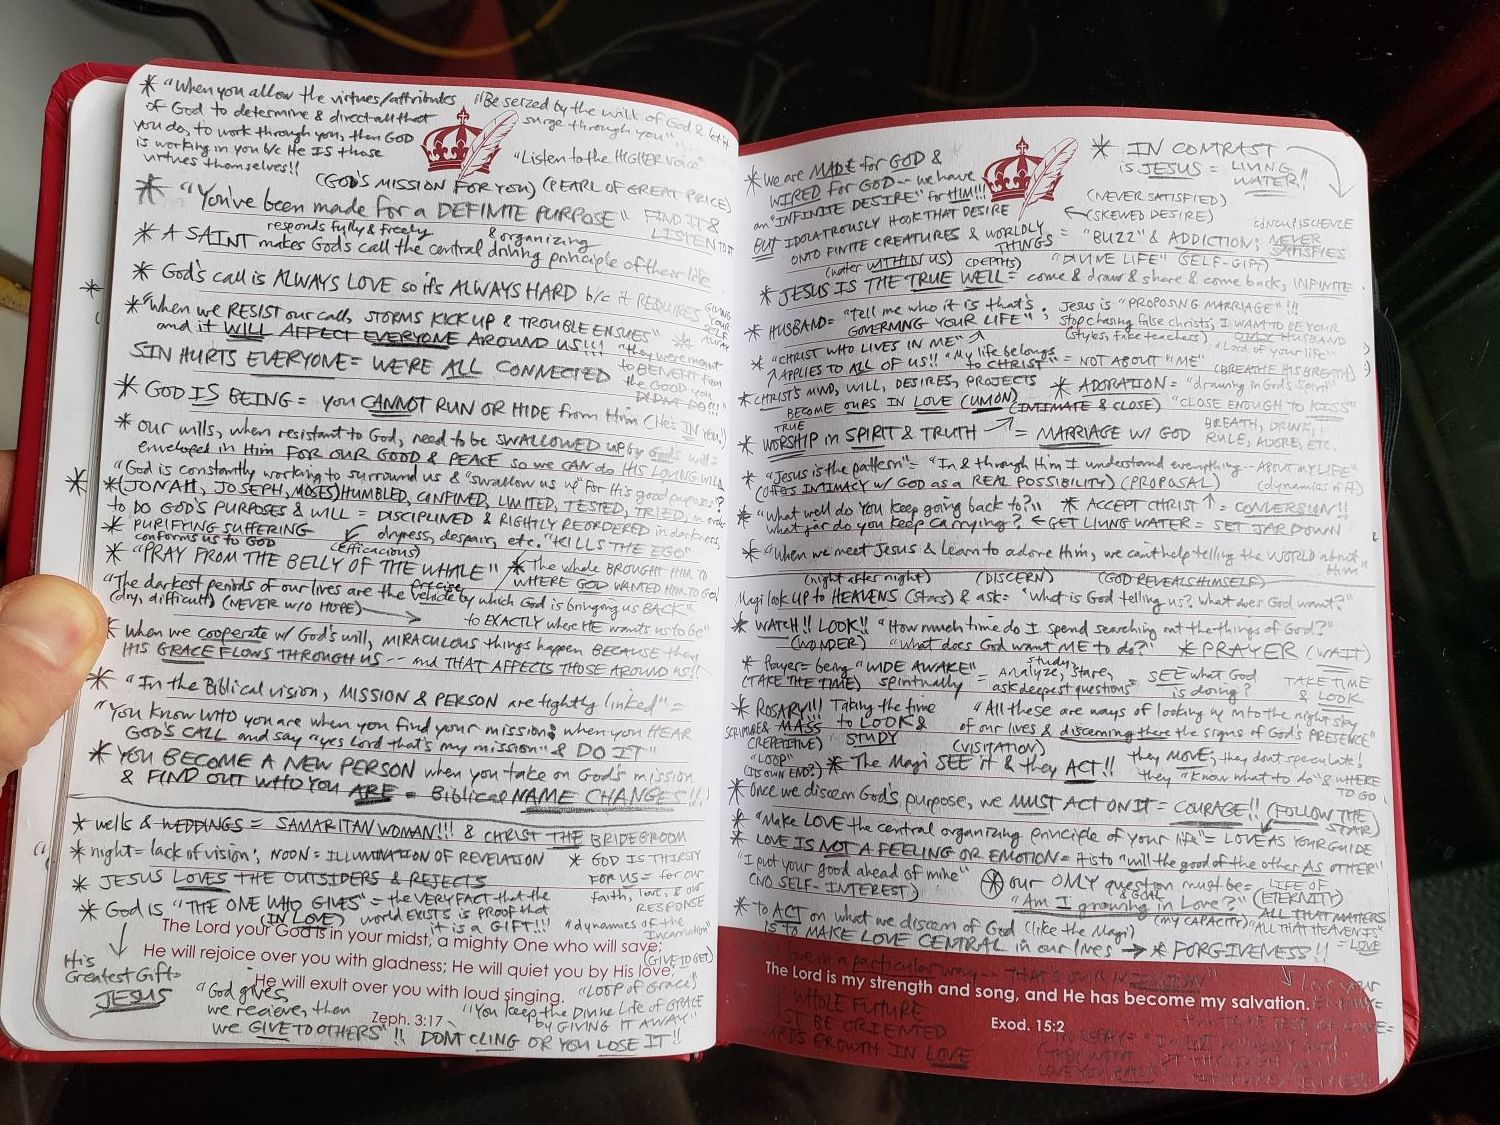 * "When you allow the virtues/attributes
of God to determine & direct all that
you do, to work through you, then GOD
is working in you b/c He IS those
virtues themselves!!
"Be seized by the will of God & let it
surge through you"
"Listen to the HIGHER voice"
(GOD'S MISSION FOR YOU) (PEARL OF GREAT PRICE)
* "You've been made for a DEFINITE PURPOSE" FIND IT &
LISTEN TO IT
responds fully & freely & organizing
* A SAINT makes God's call the central driving principle of their life
* God's call is ALWAYS LOVE so it's ALWAYS HARD b/c it REQUIRES GIVING
YOUR
SELF
AWAY
* "When we RESIST our call, STORMS KICK UP & TROUBLE ENSUES"
and it WILL AFFECT EVERYONE AROUND US!!!
* "they were meant
to BENEFIT from
the GOOD you
DIDN'T DO!!!"
SIN HURTS EVERYONE = WE'RE ALL CONNECTED
* GOD IS BEING = you CANNOT RUN OR HIDE from Him (He's IN YOU!)
* our wills, when resistant to God, need to be SWALLOWED up by God's will =
enveloped in Him FOR OUR GOOD & PEACE so we CAN do HIS LOVING WILL
* "God is constantly working to surround us & "swallow us up" for His good purposes"?
*(JONAH, JOSEPH, MOSES) HUMBLED, CONFINED, LIMITED, TESTED, TRIED, in order
to DO GOD'S PURPOSES & WILL = DISCIPLINED & RIGHTLY REORDERED in darkness,
* PURIFYING SUFFERING dryness, despair, etc. "KILLS THE EGO"
conforms us to GOD (efficacious)
* "PRAY FROM THE BELLY OF THE WHALE" * The whale BROUGHT HIM TO
WHERE GOD WANTED HIM TO GO!
"The darkest periods of our lives are the precise vehicle by which God is bringing us BACK"
(dry, difficult) (NEVER W/O HOPE) to EXACTLY where HE wants us to be"
* When we cooperate w/ God's will, MIRACULOUS things happen BECAUSE then
HIS GRACE FLOWS THROUGH US -- and THAT AFFECTS THOSE AROUND US!!
* "In the Biblical vision, MISSION & PERSON are tightly linked" =
"You know WHO you are when you find your mission; when you HEAR
GOD'S CALL and say "yes Lord that's my mission" & DO IT"
* YOU BECOME A NEW PERSON when you take on God's mission
& FIND OUT WHO YOU ARE = Biblical NAME CHANGES!!
* wells & WEDDINGS = SAMARITAN WOMAN!!! & CHRIST THE BRIDEGROOM
* night = lack of vision; NOON = ILLUMINATION OF REVELATION
* GOD IS THIRSTY
FOR US = for our
faith, love, & our
RESPONSE
* JESUS LOVES THE OUTSIDERS & REJECTS
* God is "THE ONE WHO GIVES" = the VERY FACT that the
(IN LOVE) world EXISTS is PROOF that
it is a GIFT!!!
"dynamics of the
Incarnation"
(GIVE TO GET)
The Lord your God is in your midst, a mighty One who will save;
He will rejoice over you with gladness; He will quiet you by His love;
He will exult over you with loud singing.
Zeph. 3:17
His
Greatest Gift =
JESUS
"God gives,
we recieve, then
we GIVE TO OTHERS"!!
"LOOP of Grace"
"You keep the Divine Life of GRACE
by GIVING IT AWAY"
DON'T CLING OR YOU LOSE IT!!
* We are MADE for GOD &
WIRED for GOD -- we have
an "INFINITE DESIRE" for HIM!!!
BUT IDOLATROUSLY HOOK THAT DESIRE
ONTO FINITE CREATURES & WORLDLY
THINGS = "BUZZ" & ADDICTION; NEVER
SATISFIES
* IN CONTRAST
is JESUS = LIVING
WATER!!
(NEVER SATISFIED)
(SKEWED DESIRE)
(water WITHIN US) (DEPTHS) "DIVINE LIFE" (SELF-GIFT)
* JESUS IS THE TRUE WELL = come & draw & share & come back, INFINITE
* HUSBAND = "tell me who it is that's
GOVERNING YOUR LIFE";
Jesus is "PROPOSING MARRIAGE"!!!
stop chasing false christs; I WANT TO BE YOUR
(styles, fake teachers) ONLY HUSBAND
"Lord of your life"
* "CHRIST WHO LIVES IN ME"
APPLIES TO ALL OF US!! "My life belongs
to CHRIST" = NOT ABOUT "ME" (BREATHE HIS BREATH)
*CHRIST'S MIND, WILL, DESIRES, PROJECTS
BECOME OURS IN LOVE (UNION) (INTIMATE & CLOSE)
* ADORATION = "drawing in God's Spirit"
"CLOSE ENOUGH TO KISS"
BREATH, DRINK,
RULE, ADORE, ETC.
TRUE
* WORSHIP in SPIRIT & TRUTH = MARRIAGE W/ GOD
* "Jesus is the pattern" = "In & through Him I understand everything -- ABOUT MY LIFE"
(offers INTIMACY w/ GOD as a REAL POSSIBILITY) (PROPOSAL) (dynamics of it)
* "What well do YOU keep going back to?" * ACCEPT CHRIST = CONVERSION!!
What jar do you keep carrying? GET LIVING WATER = SET JAR DOWN
* "When we meet Jesus & learn to adore Him, we can't help telling the WORLD about
Him"
(night after night) (DISCERN) (GOD REVEALS HIMSELF)
Magi look UP to HEAVENS (stars) & ask = "What is God telling us? What does God want?"
* WATCH!! LOOK!! "How much time do I spend searching out the things of God?"
(WONDER) "What does God want ME to do?" * PRAYER (WAIT)
* Prayer = being "WIDE AWAKE" = study, analyze, stare, = SEE what God
(TAKE THE TIME) spiritually ask deepest questions is doing?
TAKE TIME
& LOOK
* ROSARY!!! Taking the time
SCRIPTURE & MASS to LOOK &
(REPETITIVE) STUDY
"LOOP"
(ITS OWN END?)
"All these are ways of looking up into the night sky
of our lives & discerning there the signs of God's PRESENCE"
(VISITATION)
* The Magi SEE it & they ACT!! they MOVE; they don't speculate!
they "know what to do" & WHERE
TO GO!
* Once we discern God's purpose, we MUST ACT ON IT = COURAGE!! (FOLLOW THE
STAR)
* "Make LOVE the central organizing principle of your life" = LOVE AS YOUR GUIDE
* LOVE IS NOT A FEELING OR EMOTION = it is to "will the good of the other AS OTHER"
"I put your good ahead of mine"
(NO SELF-INTEREST)
* our ONLY question must be =
& GOAL
"Am I growing in Love?"
(MY CAPACITY)
LIFE OF
(ETERNITY)
ALL THAT MATTERS
"ALL THAT HEAVEN IS"
= LOVE
* TO ACT on what we discern of God (like the Magi)
is to MAKE LOVE CENTRAL in our lives → * FORGIVENESS!!
love in a particular way -- THAT'S OUR MISSION"
The Lord is my strength and song, and He has become my salvation.
Exod. 15:2
WHOLE FUTURE
MUST BE ORIENTED
TOWARDS GROWTH IN LOVE